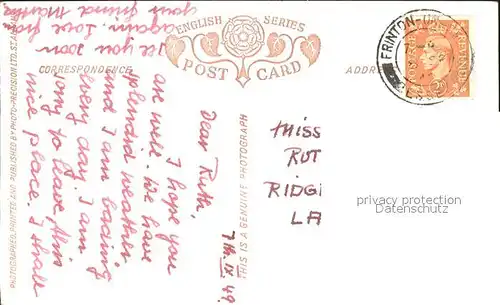 ENGLISH SERIES
POST CARD
CORRESPONDENCE
ADDRE
FRINTON-ON
MISS
RUT
RIDGI
LA
privacy protection
Datenschutz
THIS IS A GENUINE PHOTOGRAPH
PHOTOGRAPHED, PRINTED AND PUBLISHED BY PHOTO-PRECISION LTD. ST.
7th. IX. 49.
Dear Ruth,
I hope you
are well. We have
splendid weather
and I am bading
every day. I am
sorry to leave this
nice place. I shall
see you soon
again. Love from
your friend Martha